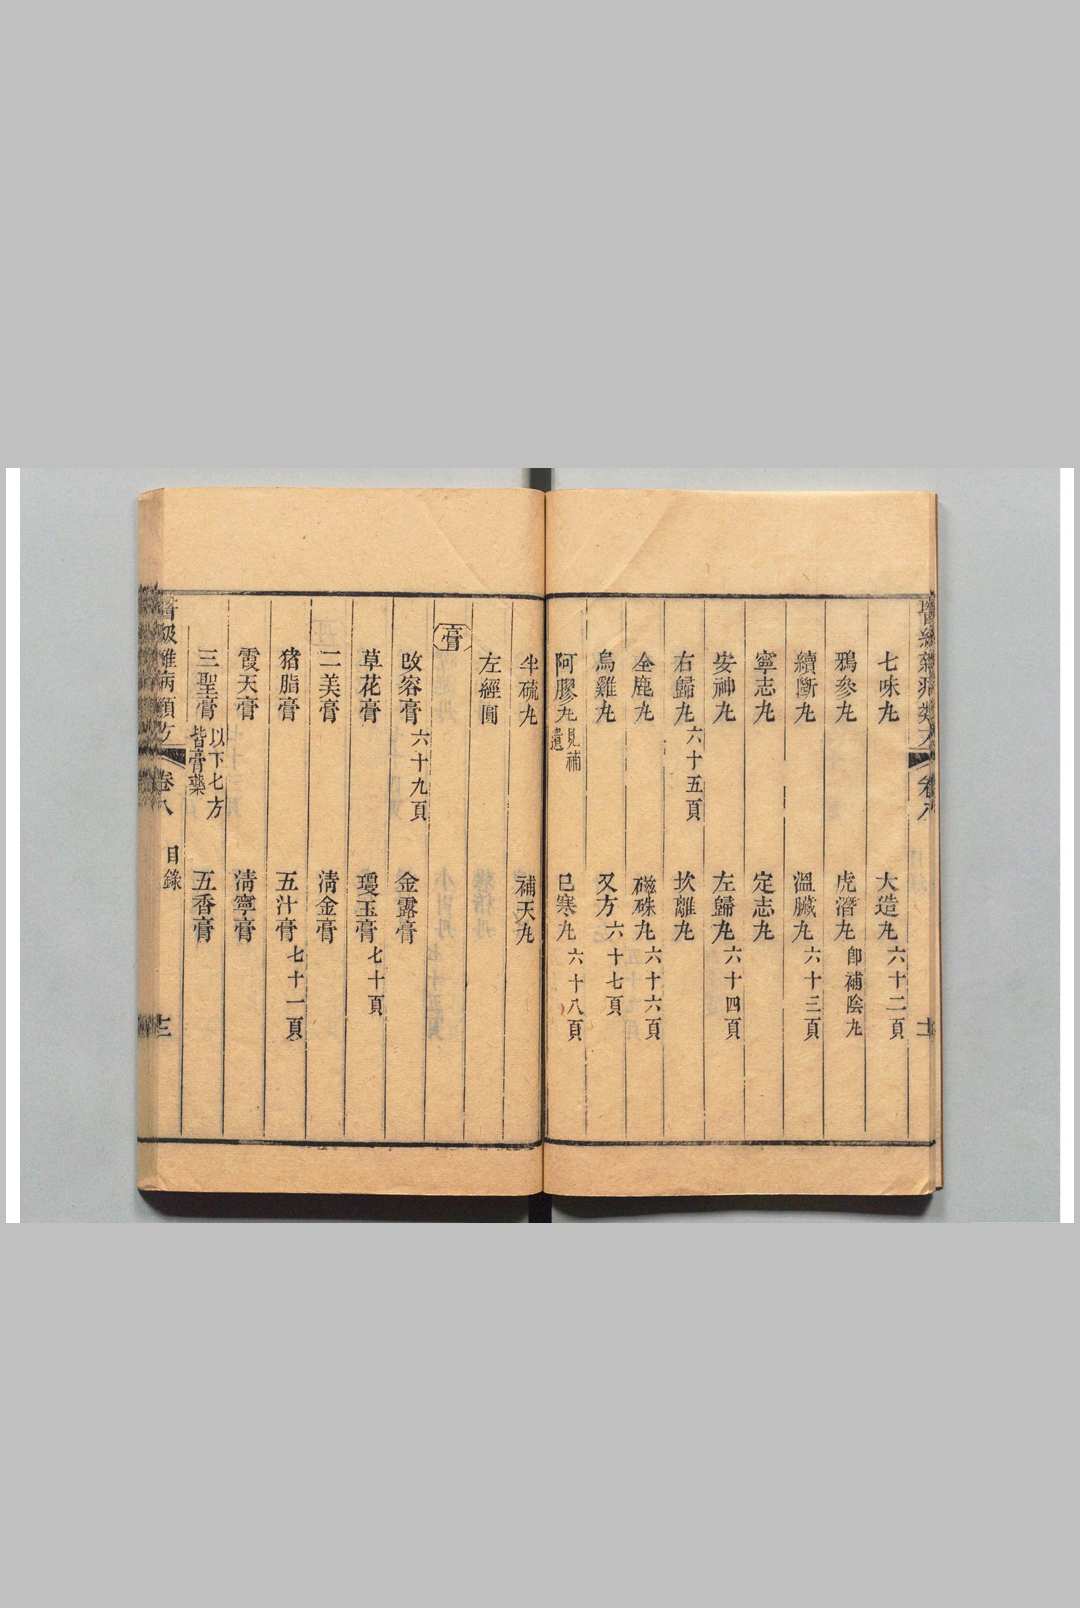 七味丸　大造丸六十二頁
鴉參丸　虎潛丸卽補陰丸
續斷丸　溫臟丸六十三頁
寧志丸　定志丸
安神丸　左歸丸六十四頁
右歸丸六十五頁　坎離丸
全鹿丸　磁硃丸六十六頁
烏雞丸　又方六十七頁
阿膠丸見補遺　巳寒丸六十八頁
半硫丸　補天丸
左經圓
膏
改容膏六十九頁　金露膏
草花膏　瓊玉膏七十頁
二美膏　清金膏
猪脂膏　五汁膏七十一頁
霞天膏　清寧膏
三聖膏以下七方皆膏藥　五香膏
醫級雜病類方　卷八　目錄　十三